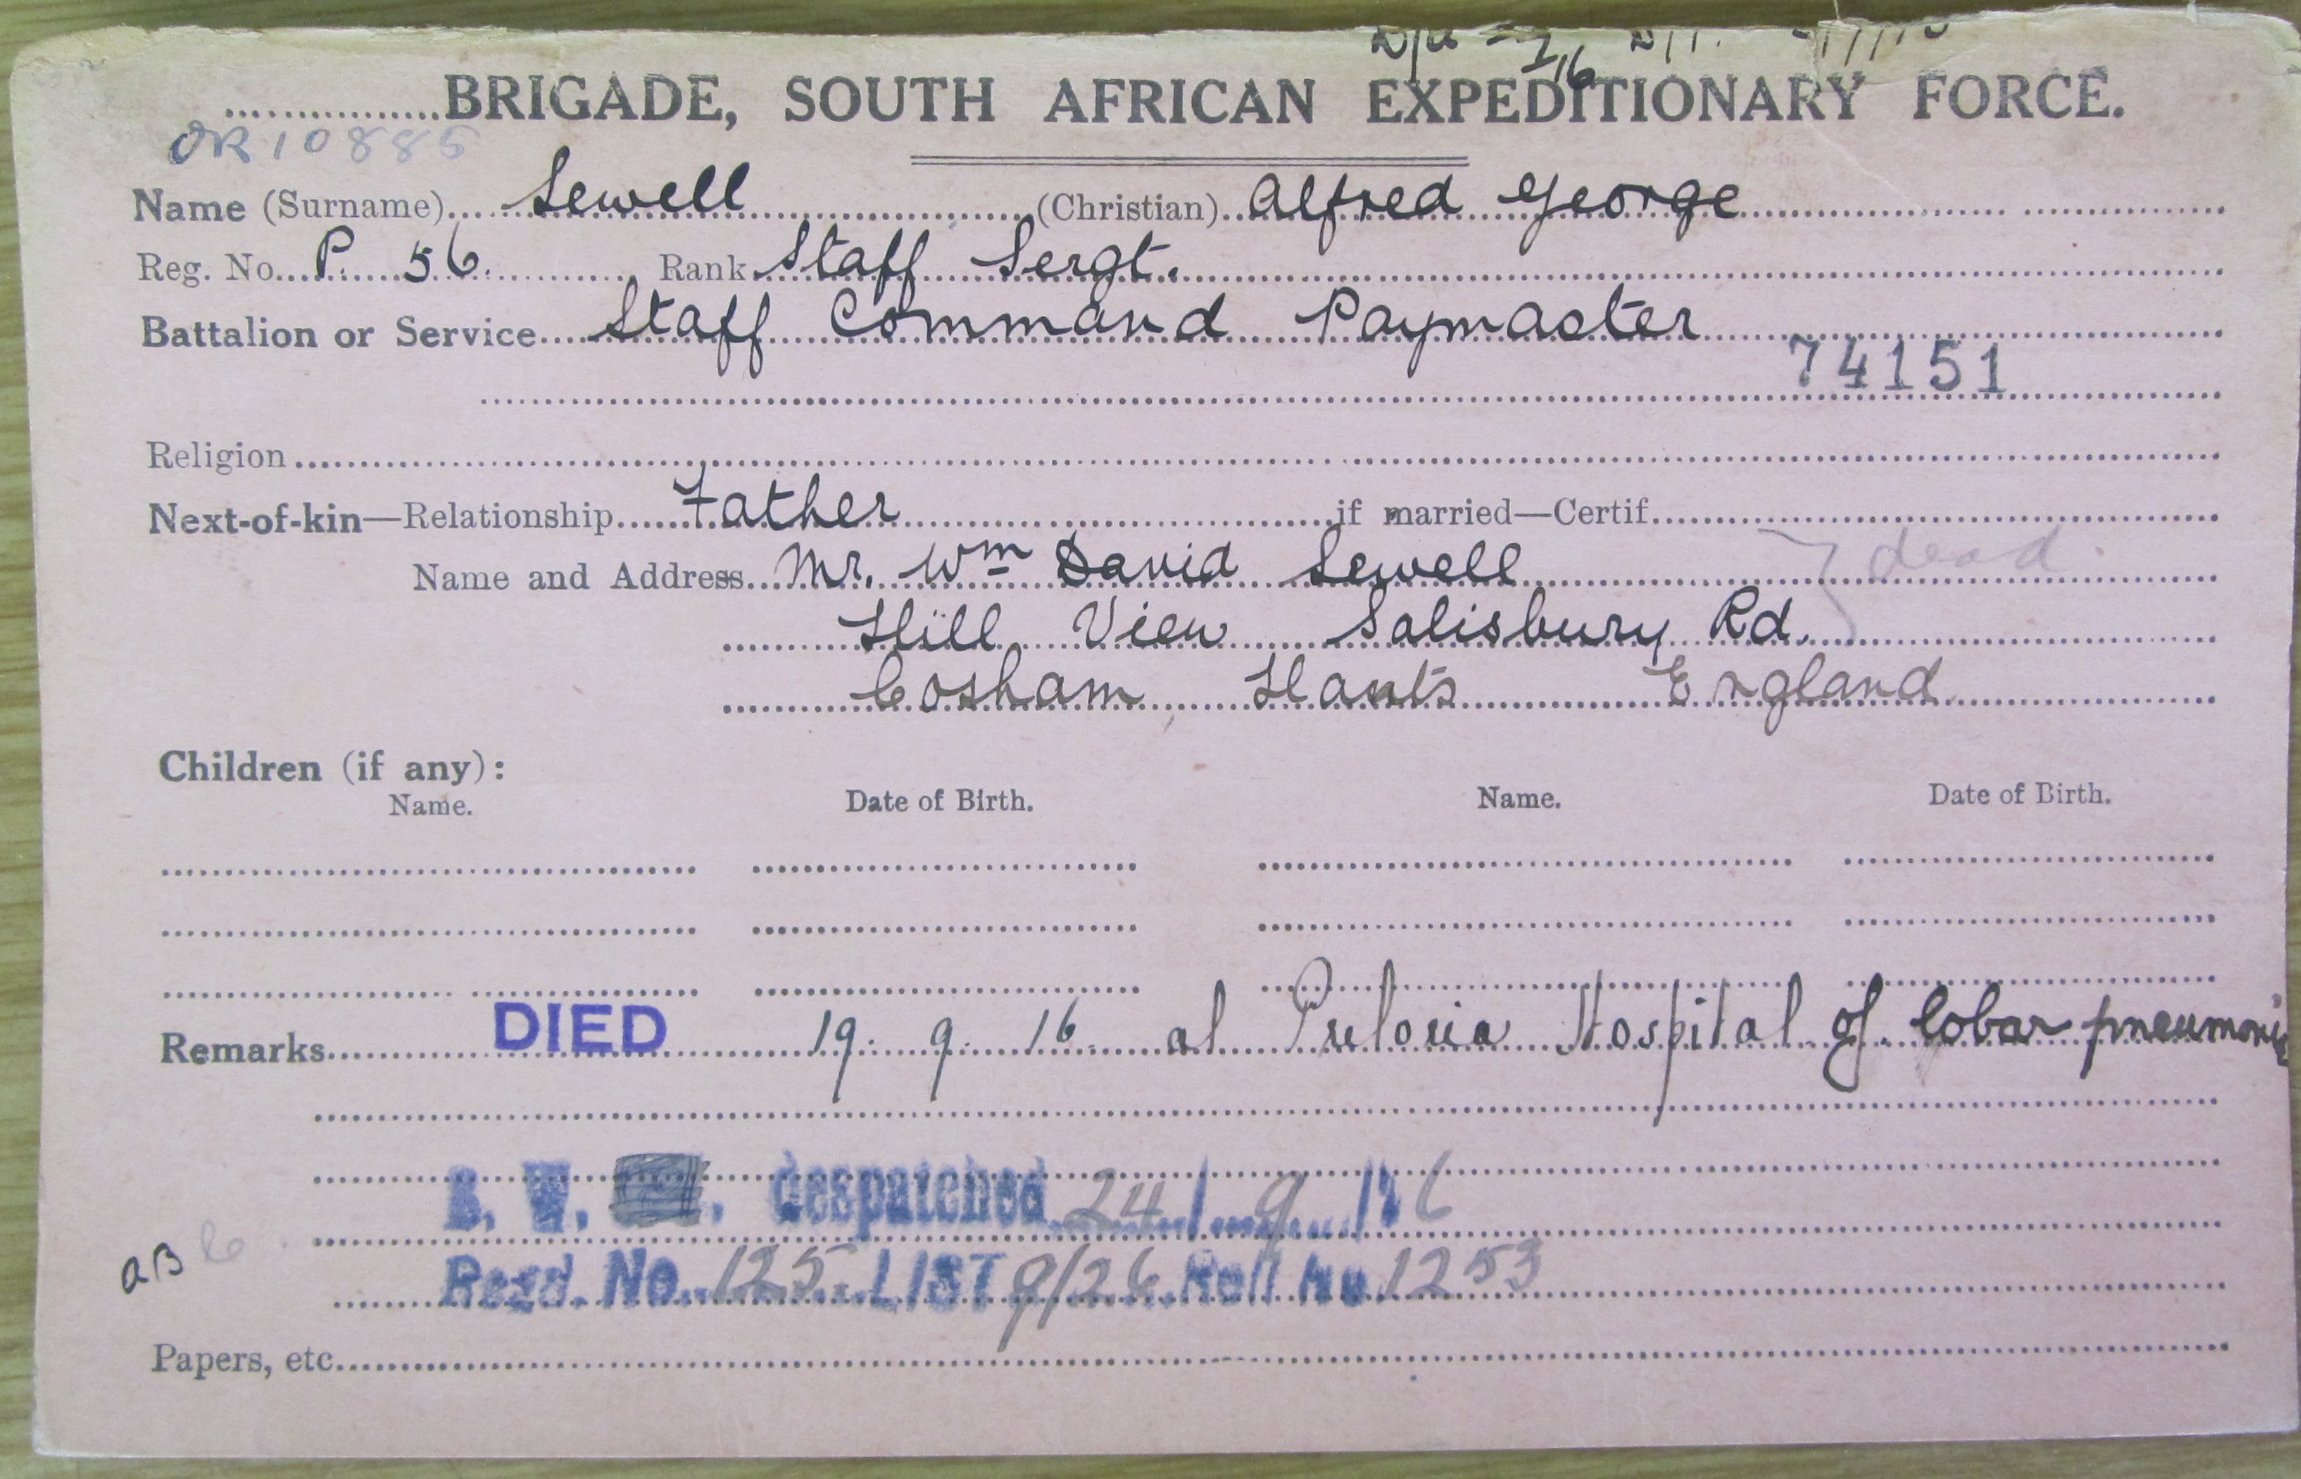 BRIGADE, SOUTH AFRICAN EXPEDITIONARY FORCE.
OR 10885
Name (Surname) Sewell (Christian) Alfred George
Reg. No. P. 56. Rank Staff Sergt.
Battalion or Service Staff Command Paymaster
74151
Religion
Next-of-kin—Relationship Father if married—Certif.
Name and Address Mr. Wm David Sewell dead
Hill View Salisbury Rd.
Cosham Hants England
Children (if any):
Name. Date of Birth. Name. Date of Birth.
Remarks DIED 19. 9. 16 at Pretoria Hospital of lobar pneumonia
B. W. despatched 24/9/16
Regd. No. 125 LIST 9/26 Roll No 1253
aB
Papers, etc.